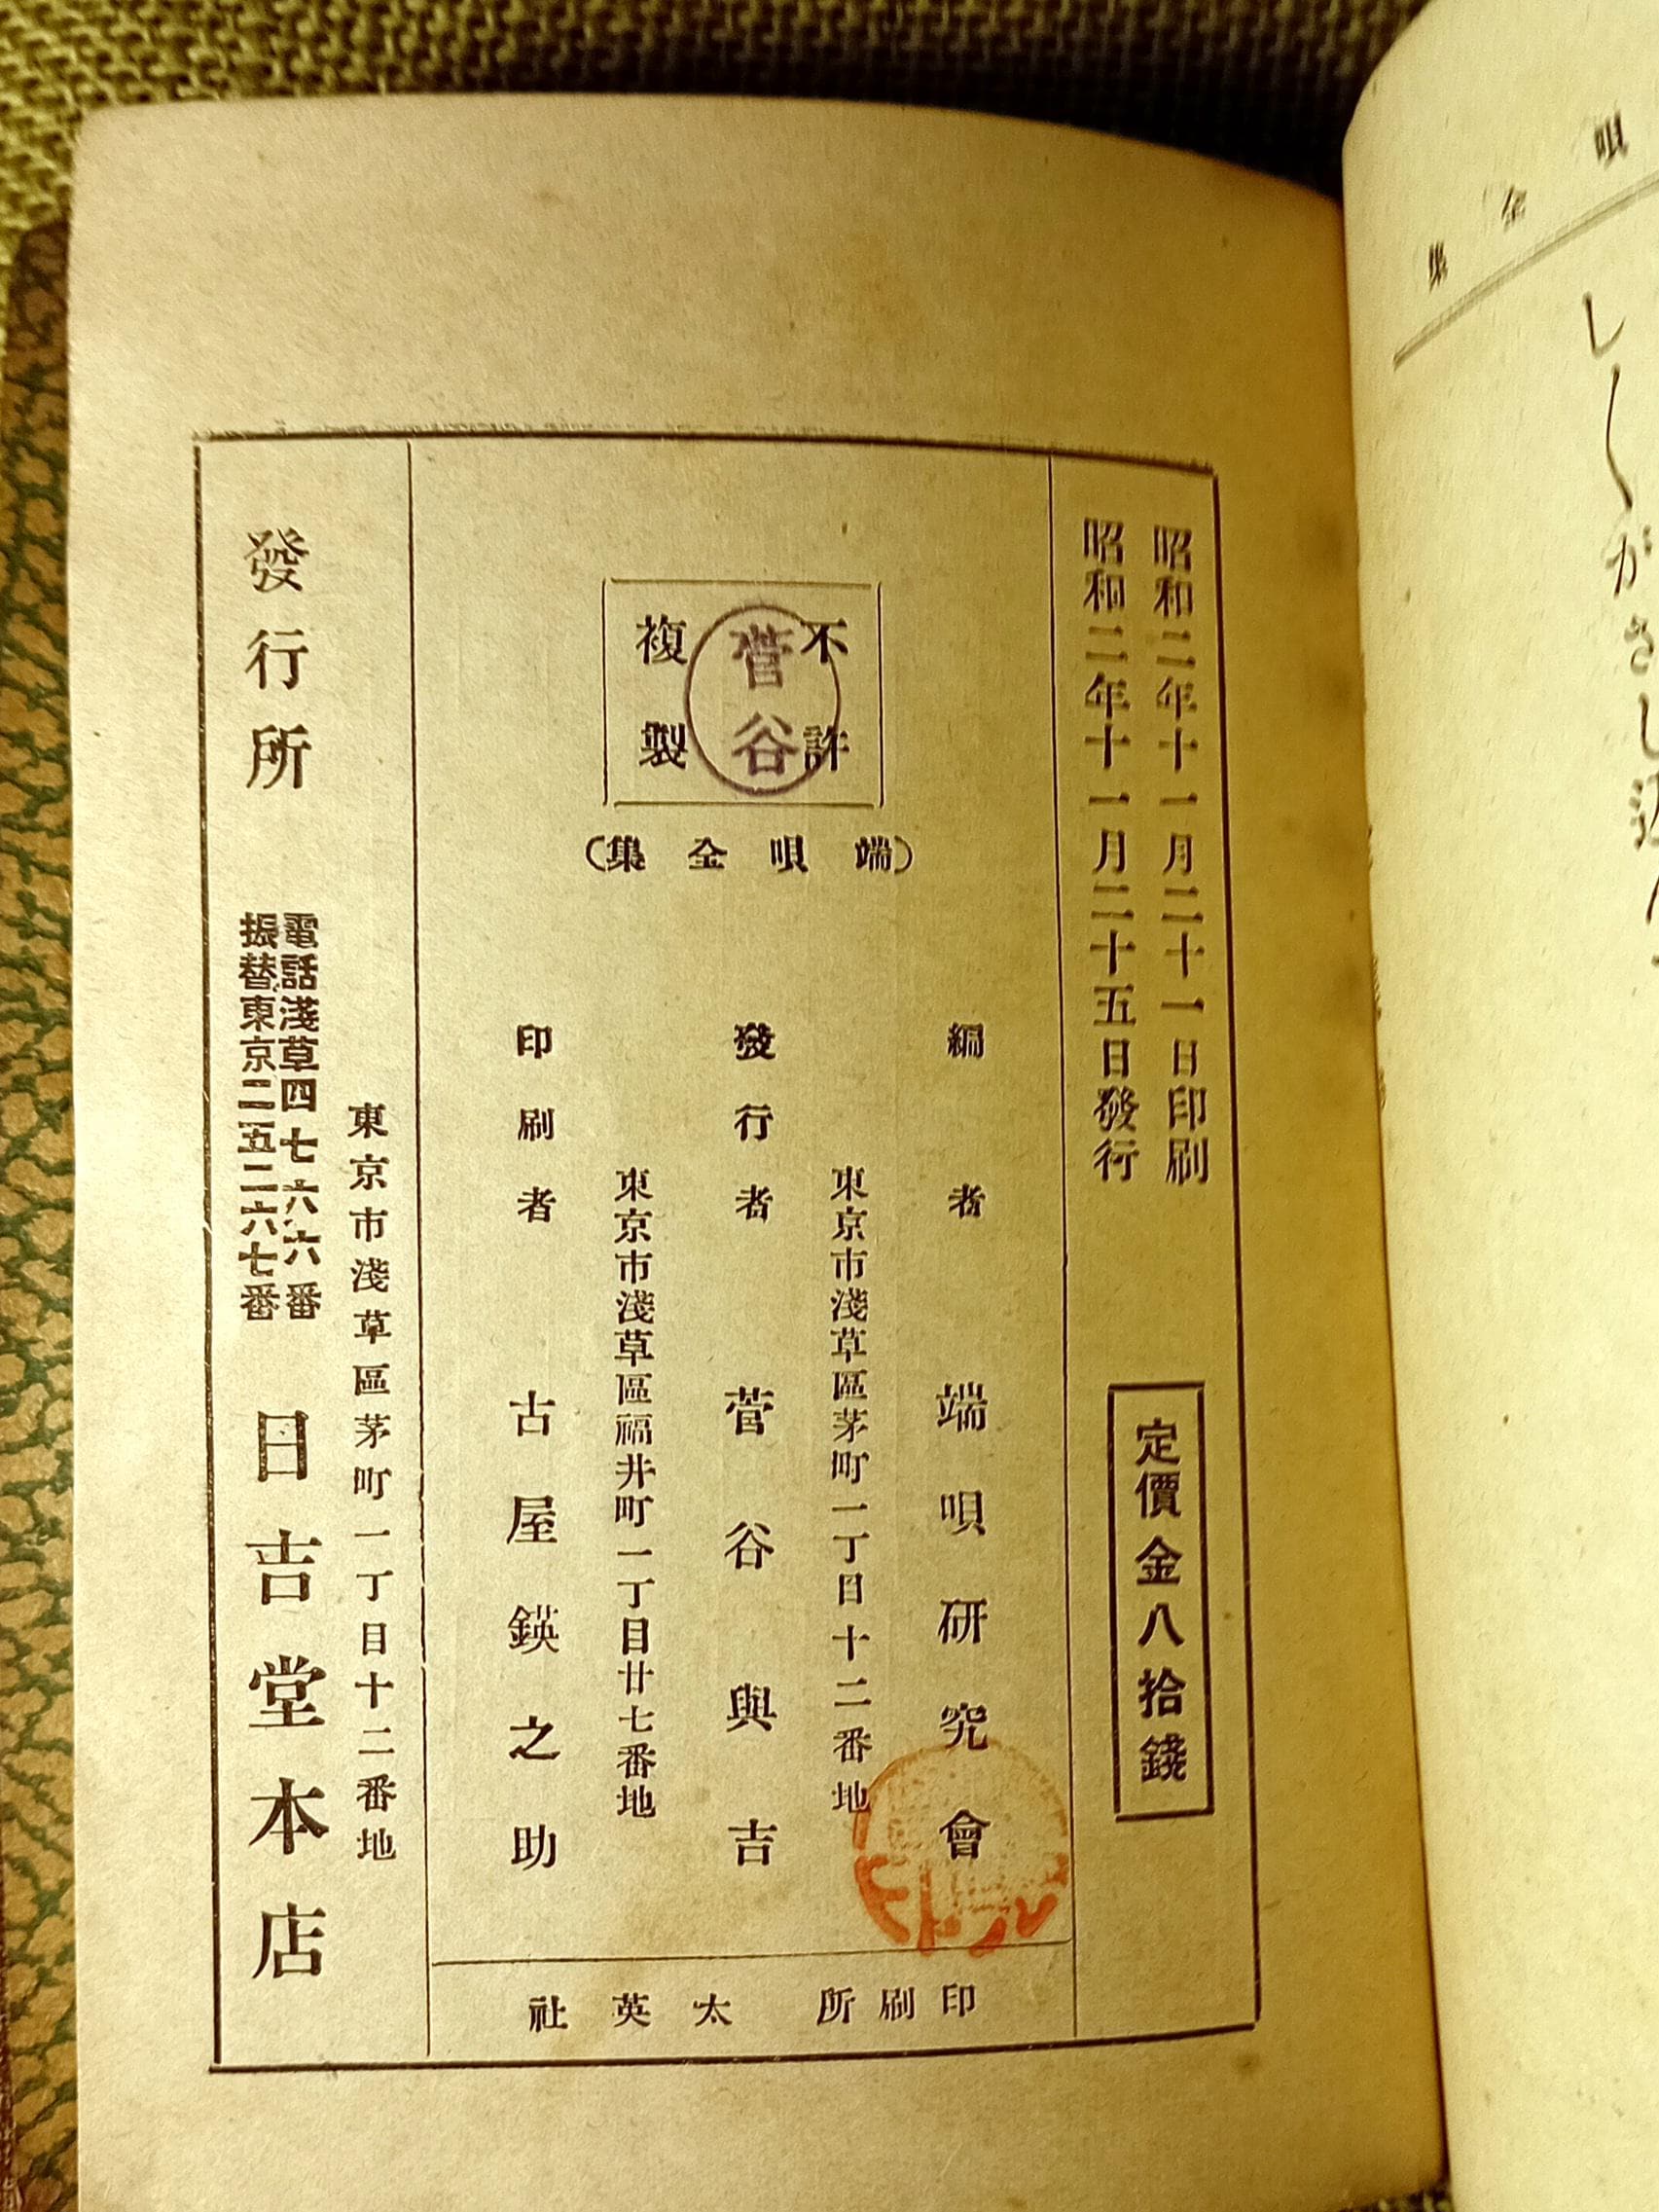 唄
全
集
し〱がさし
昭和二年十一月二十一日印刷
昭和二年十一月二十五日發行
定價金八拾錢
不許
複製
菅谷
（端唄全集）
編者 端唄研究會
東京市淺草區茅町一丁目十二番地
發行者 菅谷與吉
東京市淺草區福井町一丁目廿七番地
印刷者 古屋鍈之助
印刷所 太英社
東京市淺草區茅町一丁目十二番地
發行所
電話淺草四七六六番
振替東京二五二六七番
日吉堂本店